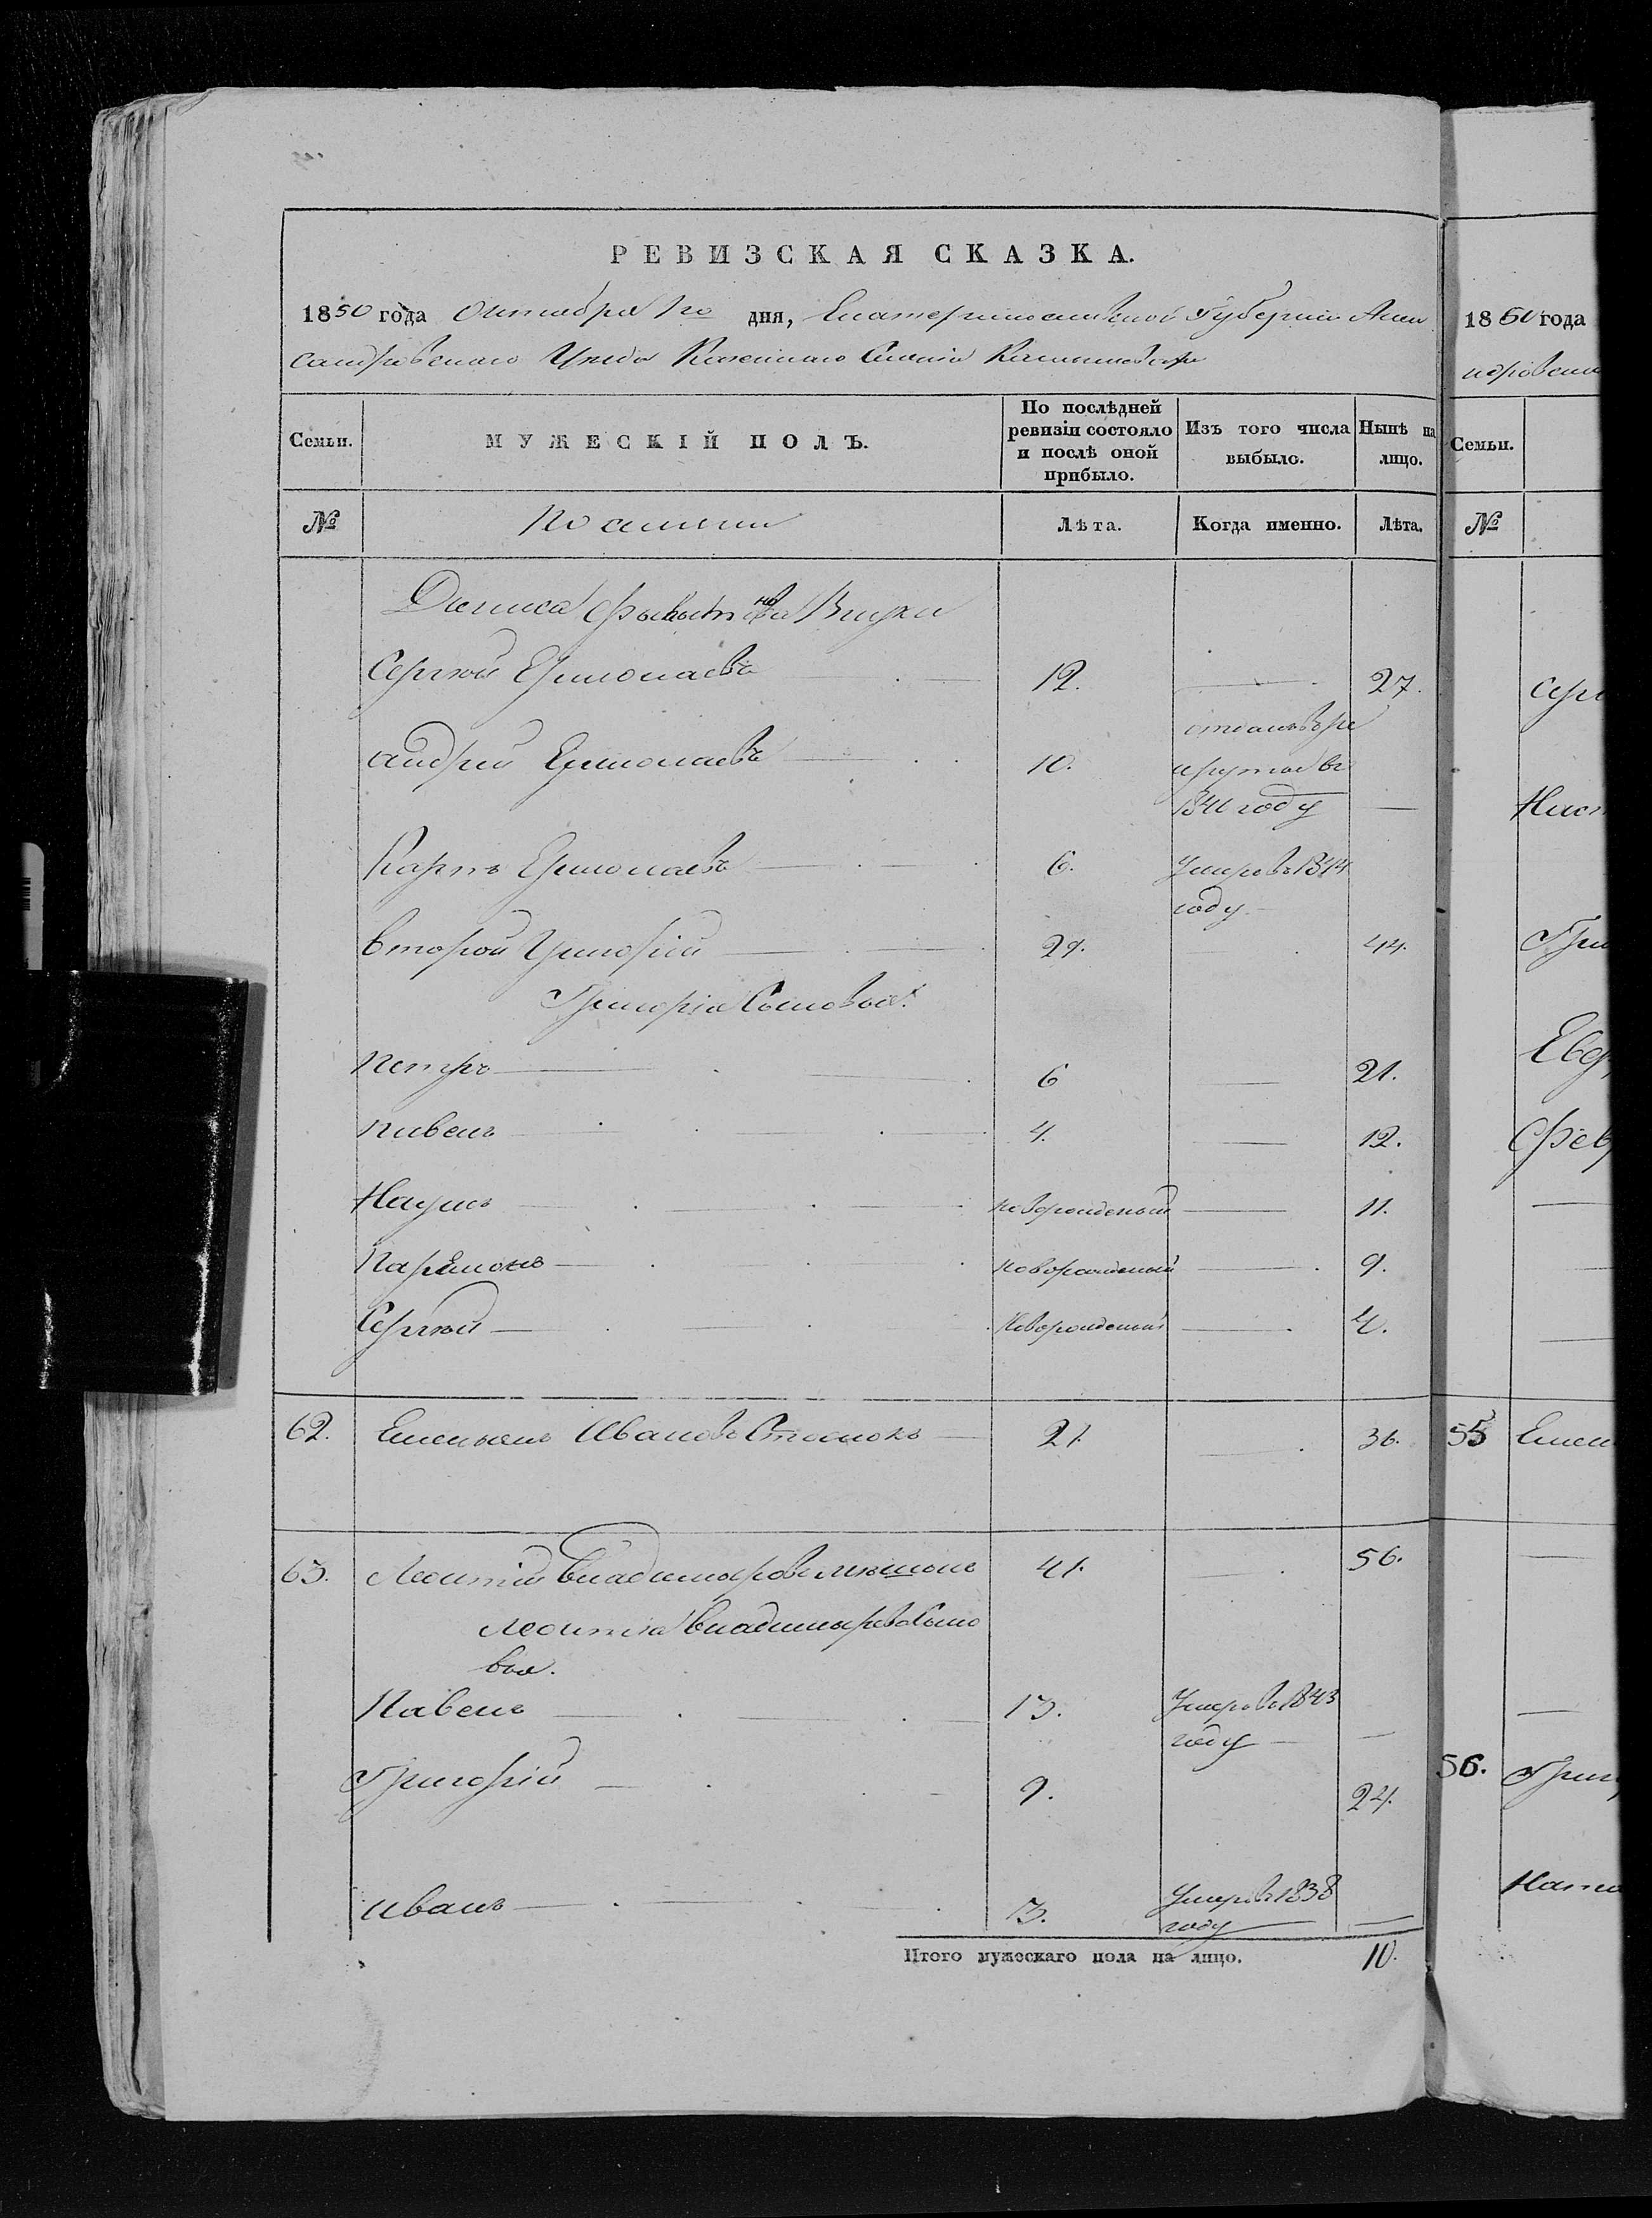 РЕВИЗСКАЯ СКАЗКА.
1850 года Октября 1го дня, Екатеринославской Губернии Алек
сандровского Уезда Казенного Селения
Семьи.
МУЖЕСКІЙ ПОЛЪ.
По послѣдней ревизіи состояло и послѣ оной прибыло.
Изъ того числа выбыло.
Нынѣ на лицо.
№
Лѣта.
Когда именно.
Лѣта.
Внуки
Сергѣй Ермолаевъ 12. 27.
Андрей Ермолаевъ 10. отданъ въ ре
круты въ
году
Карпъ Ермолаевъ 6. Умеръ въ 1844
году
второй Григорій 29. 44.
Григорія Сыновья:
Петръ 6 21.
Павелъ 4. 12.
Наумъ новорожденый 11.
Парамонъ новорожденый 9.
Сергѣй Новорожденый 4.
62. Емельянъ Ивановъ 21. 36.
63. Леонтій Владимировъ 41. 56.
Леонтія Владимирова Сыно
вья.
Павелъ 13. Умеръ въ 1843
году
Григорій 9. 24.
Иванъ 3. Умеръ въ 1838
году
Итого мужескаго пола на лицо. 10.
1850 года
Семьи.
№
55 Емел
56. Григ